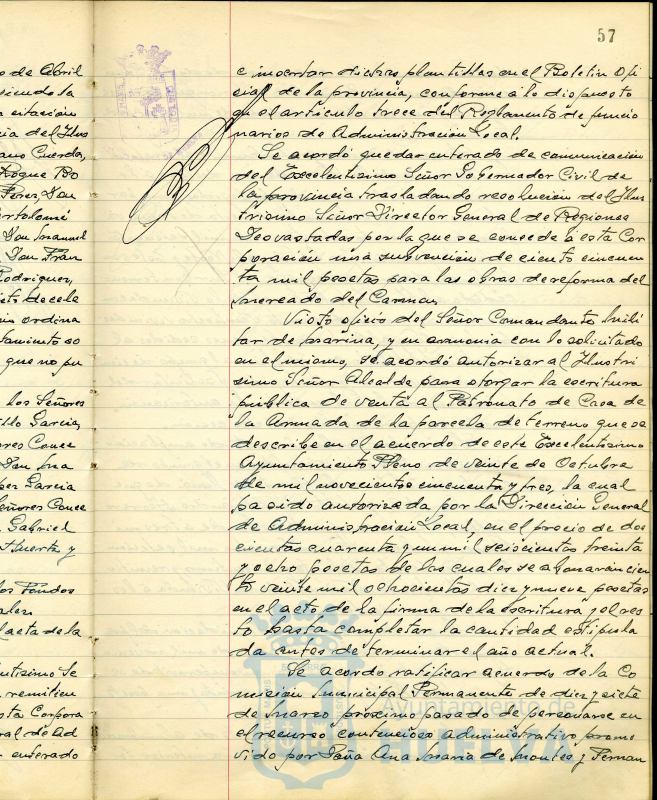 57
o de Abril
siendo la
a citación
ia del Ilus
ano Cuerda,
Roque Bo
Perez, Don
artolomé
Don Manuel
Don Fran
Rodriguez,
eto de cele
ion ordina
tamiento so
que no pu
los Señores
llo Garcia,
ores Conce
Don Ma
pez Garcia
Señores Conce
Gabriel
Huerta y
los Fondos
ales
l acta de la
ntisimo Se
remitien
sta Corpora
ral de Ad
enterado
e insertar dichas plantillas en el Boletin Ofi
cial de la provincia, conforme a lo dispuesto
en el articulo trece del Reglamento de funcio
narios de Administración Local.
Se acordó quedar enterado de comunicación
del Excelentisimo Señor Gobernador Civil de
la provincia trasladando resolución del Ilus
trisimo Señor Director General de Regiones
Devastadas por la que se concede a esta Cor
poración una subvención de ciento cincuen
ta mil pesetas para las obras de reforma del
Mercado del Carmen.
Visto oficio del Señor Comandante Mili
tar de Marina, y en armonia con lo solicitado
en el mismo, se acordó autorizar al Ilustri
simo Señor Alcalde para otorgar la escritura
pública de venta al Patronato de Casa de
la Armada de la parcela de terreno que se
describe en el acuerdo de este Excelentisimo
Ayuntamiento Pleno de veinte de Octubre
de mil novecientos cincuenta y tres, la cual
ha sido autorizada por la Dirección General
de Administración Local, en el precio de dos
cientas cuarenta y un mil seiscientas treinta
y ocho pesetas de las cuales se abonarán cien
to veinte mil ochocientas diez y nueve pesetas
en el acto de la firma de la escritura y el res
to hasta completar la cantidad estipula
da antes de terminar el año actual.
Se acordó ratificar acuerdo de la Co
misión Municipal Permanente de diez y siete
de Marzo próximo pasado de personarse en
el recurso contencioso administrativo promo
vido por Doña Ana Maria de Montes y Fernan
Ayuntamiento de
HUELVA